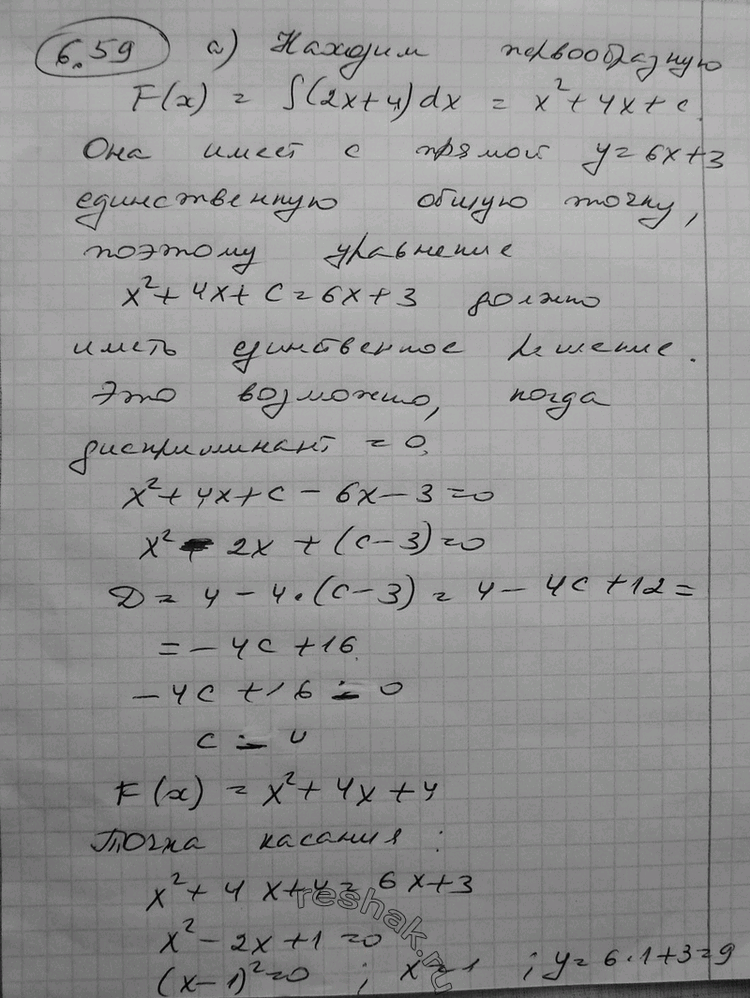 6.59 а) Находим первообразную
F(x) = ∫(2x+4)dx = x²+4x+c.
Она имеет с прямой y=6x+3
единственную общую точку,
поэтому уравнение
x²+4x+c=6x+3 должно
иметь единственное решение.
Это возможно, когда
дискриминант = 0.
x²+4x+c-6x-3=0
x² - 2x + (c-3)=0
D = 4 - 4·(c-3) = 4 - 4c +12 =
= -4c +16
-4c +16 = 0
c = 4
F(x) = x²+4x+4
Точка касания:
x²+4x+4=6x+3
x²-2x+1=0
(x-1)²=0 ; x=1 ; y=6·1+3=9
reshak.ru